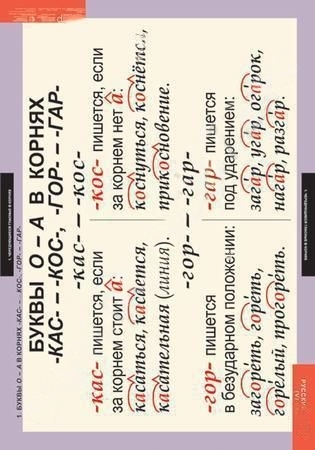 1. БУКВЫ О – А В КОРНЯХ -КАС- – -КОС-, -ГОР- – -ГАР-
БУКВЫ О – А В КОРНЯХ
-КАС- – -КОС-, -ГОР- – -ГАР-
-кас- – -кос-
-кас- пишется, если
за корнем стоит а:
касаться, касается,
касательная (линия).
-кос- пишется, если
за корнем нет а:
коснуться, коснётся,
прикосновение.
-гор- – -гар-
-гор- пишется
в безударном положении:
загореть, гореть,
горелый, прогореть.
-гар- пишется
под ударением:
загар, угар, огарок,
нагар, разгар.